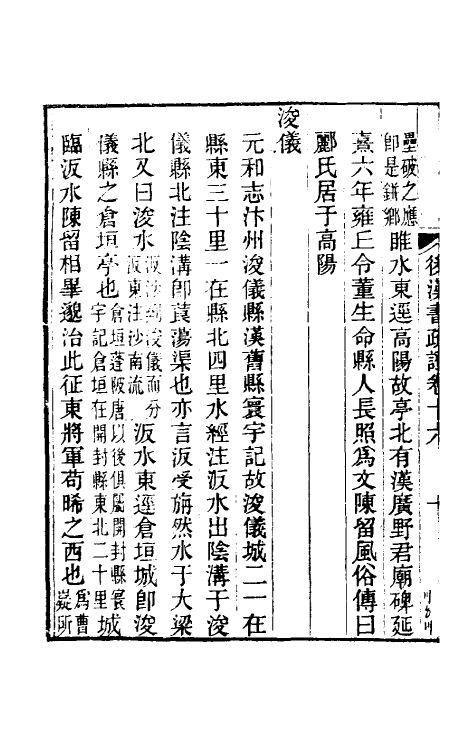 壘破之應即是䤵鄉睢水東逕高陽故亭北有漢廣野君廟碑延
熹六年雍丘令董生命縣人長照爲文陳留風俗傳曰
酈氏居于高陽
浚儀
元和志汴州浚儀縣漢舊縣寰宇記故浚儀城二一在
縣東三十里一在縣北四里水經注汳水出陰溝于浚
儀縣北注陰溝卽蒗蕩渠也亦言汳受旃然水于大梁
北又曰浚水汳沙到浚儀而分汳東注沙南流汳水東逕倉垣城卽浚
儀縣之倉垣亭也倉垣蓬陂唐以後俱屬開封縣寰宇記倉垣在開封縣東北二十里城
臨汳水陳留相畢邈治此征東將軍苟晞之西也爲曹嶷所
後漢書疏證卷十六